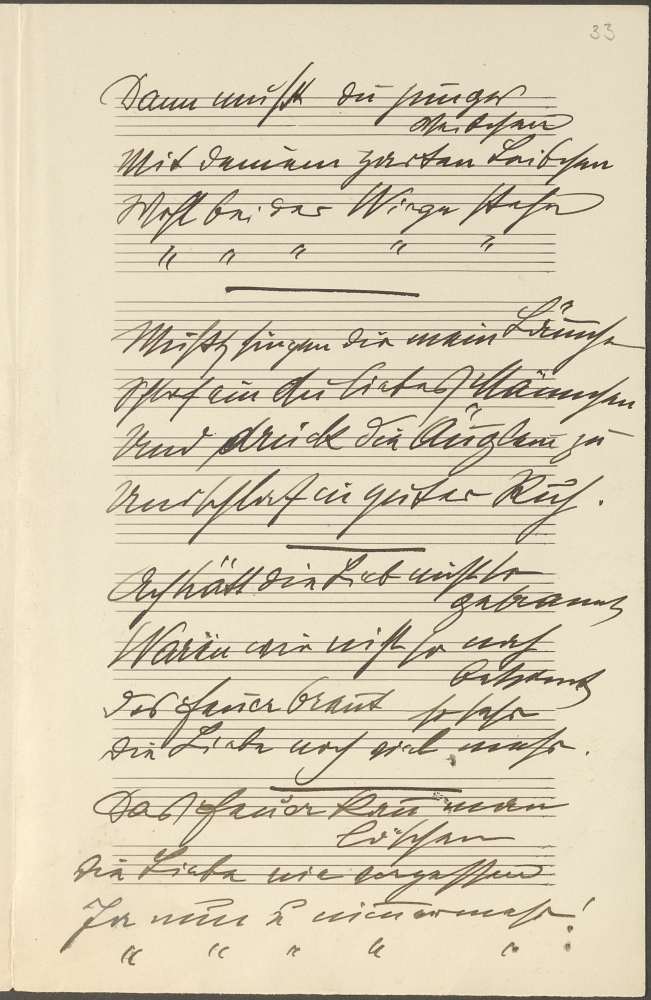 33
Dann mußt du junges
Weibchen
Mit deinem zarten Leibchen
Wohl bei der Wiege stehn
" " " " "
Mußt singen die mein
Schlaf ein du liebes Männchen
Und drück die Äuglein zu
Und schlaf in guter Ruh.
Ach hätt die Lieb nicht so
gebrannt
Warēn wir nicht so noch
bekannt
das Feuer brant so sehr
die Liebe noch viel mehr.
Das Feuer kan̄ man
löschen
die Liebe nie vergessen
Ja nun u nim̄ermehr!
" " " " " :